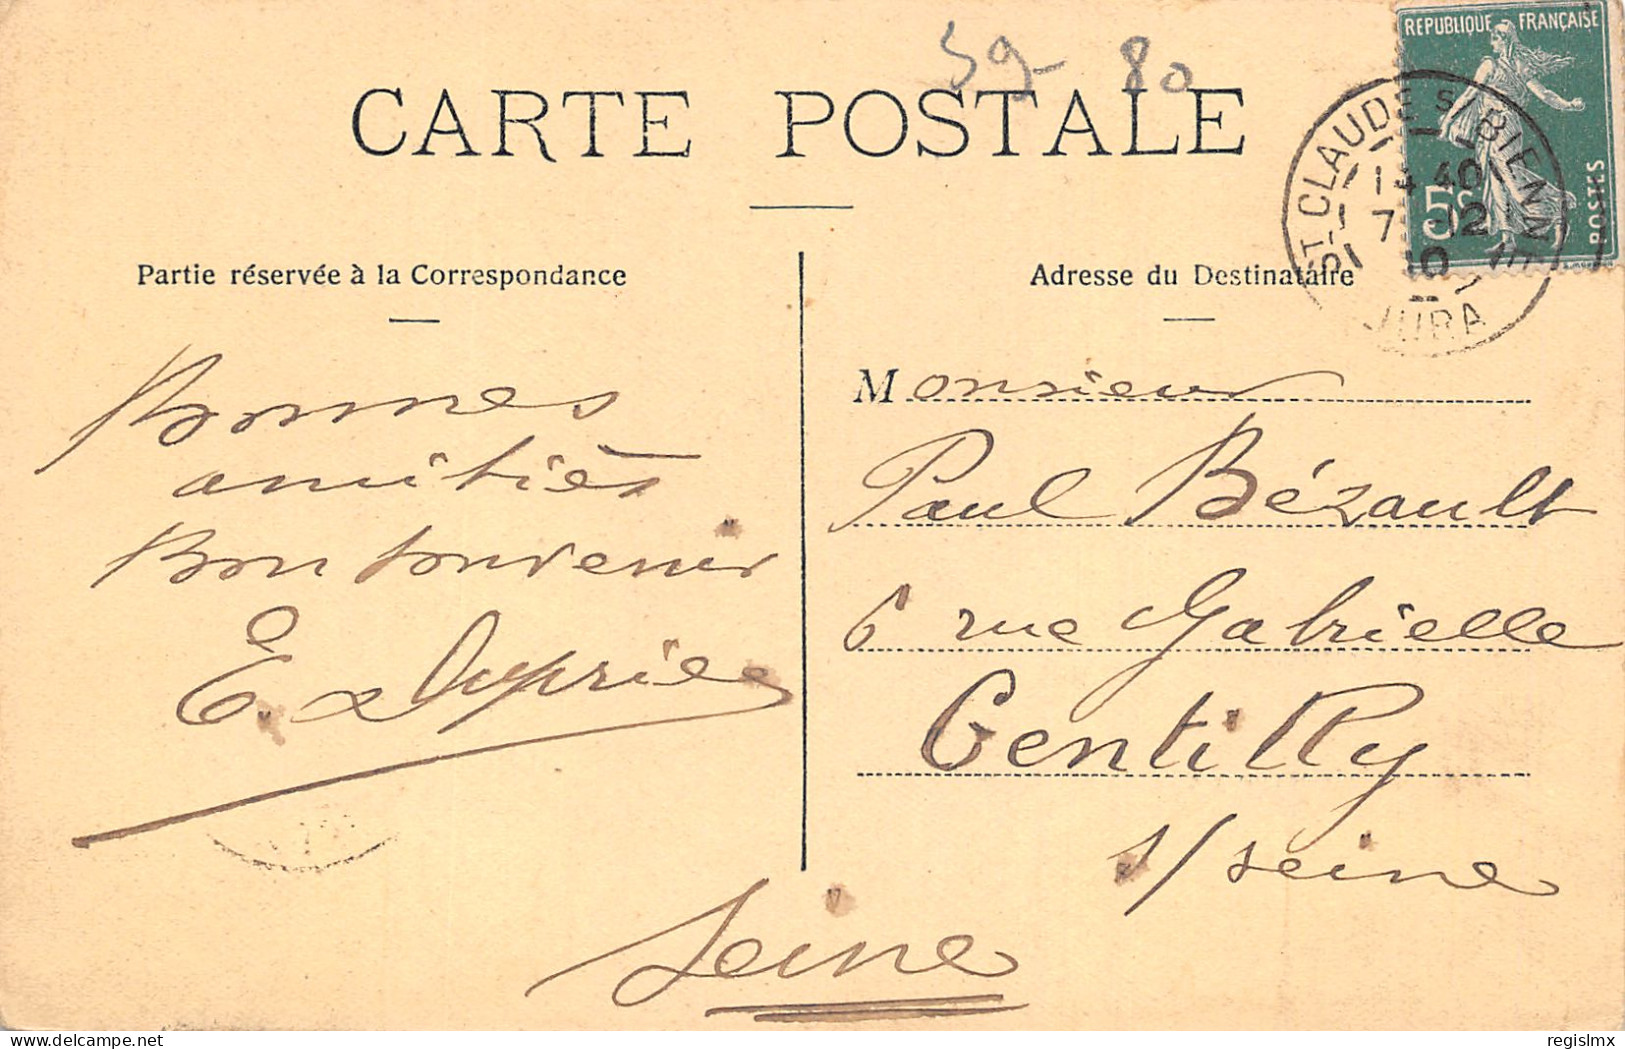 39- 80
CARTE POSTALE
RÉPUBLIQUE FRANÇAISE
5c
POSTES
ST CLAUDE S/ BIENNE
14 40
7 -12
10
JURA
Partie réservée à la Correspondance
Bonnes
amitiés
Bon souvenir
Adresse du Destinataire
Monsieur
Paul Bézault
6 rue Gabrielle
Gentilly
s/ seine
Seine
delcampe.net
regislmx